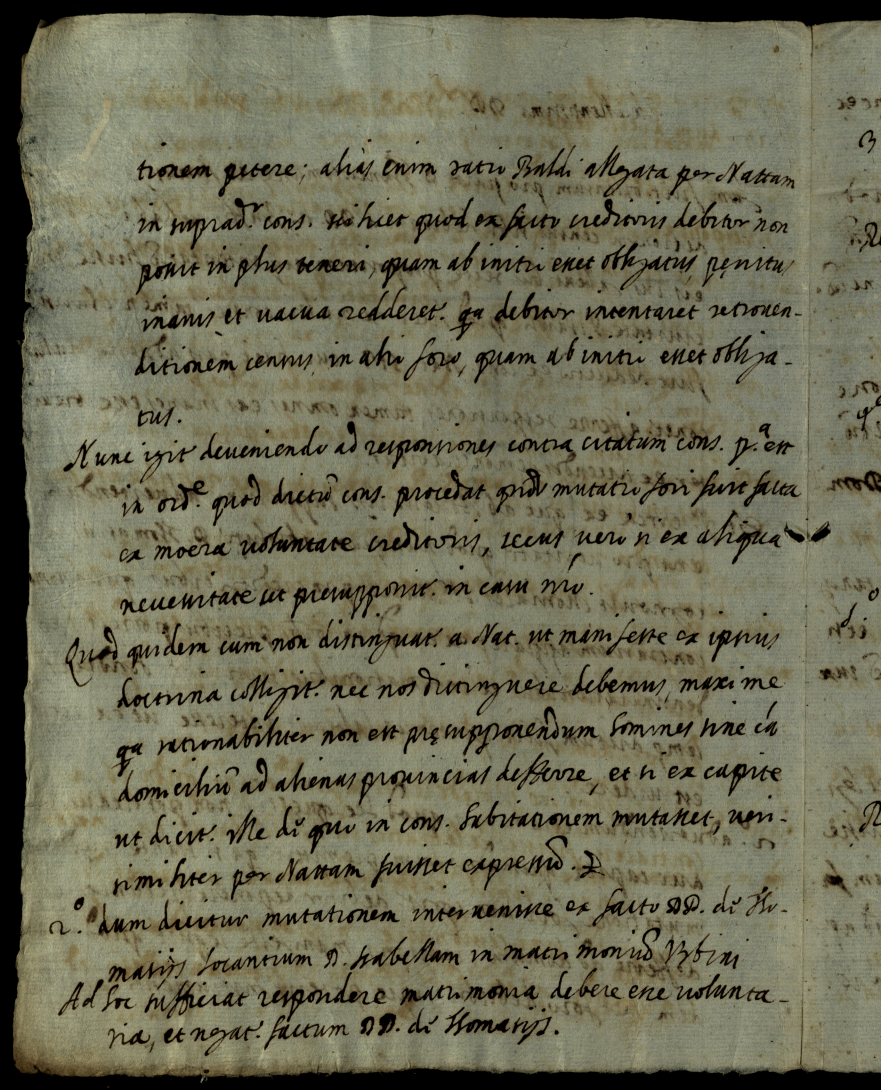 tionem petere; aliàs enim ratio Baldi allegata per Nattam
in suprad.ͬ cons. scilicet quod ex facto creditoris debitor non
possit in plus teneri, quam ab initio esset obligatus pęnitus
inanis et vacua redderet.ͬ qa debitor intentaret retroven-
ditionem census in alio foro, quam ab initio esset obliga-
tus.
Nunc igit.ͬ deveniendo ad responsiones contra citatum cons. p.ª est
in ord.ͤ quod dictũ cons. procedat quãdo mutatio fori fuit facta
ex moera voluntate creditoris, secus verò si ex aliqua
necessitate ut presupponit.ͬ in casu nr̃o.
Quod quidem cum non distinguat.ͬ a Nat. ut manifeste ex ipsius
doctrina colligit.ͬ nec nos distinguere debemus, maxime
qa rationabiliter non est pręsupponendum homines sine cá
domiciliũ ad alienas provincias defferre, et si ex capite
ut dicit.ͬ ille dẽ quo in cons. habitationem mutasset, veri-
similiter per Nattam fuisset expressũ.
2.º dum dicitur mutationem intervenisse ex facto DD. dẽ Tho-
masijs locantium D. Isabellam in matrimoniũ Urbini
Ad hoc sufficiat respondere matrimonia debere esse volunta-
ria, et negat.ͬ factum DD. dẽ Thomasijs.